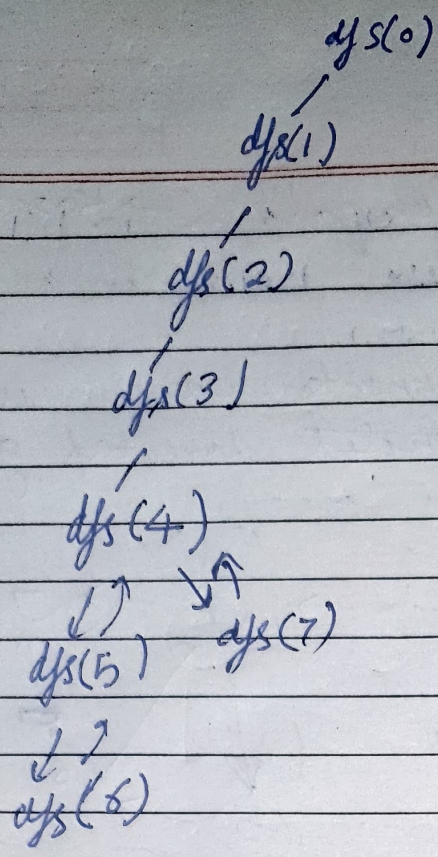 dfs(0)
dfs(1)
dfs(2)
dfs(3)
dfs(4)
dfs(7)
dfs(5)
dfs(6)